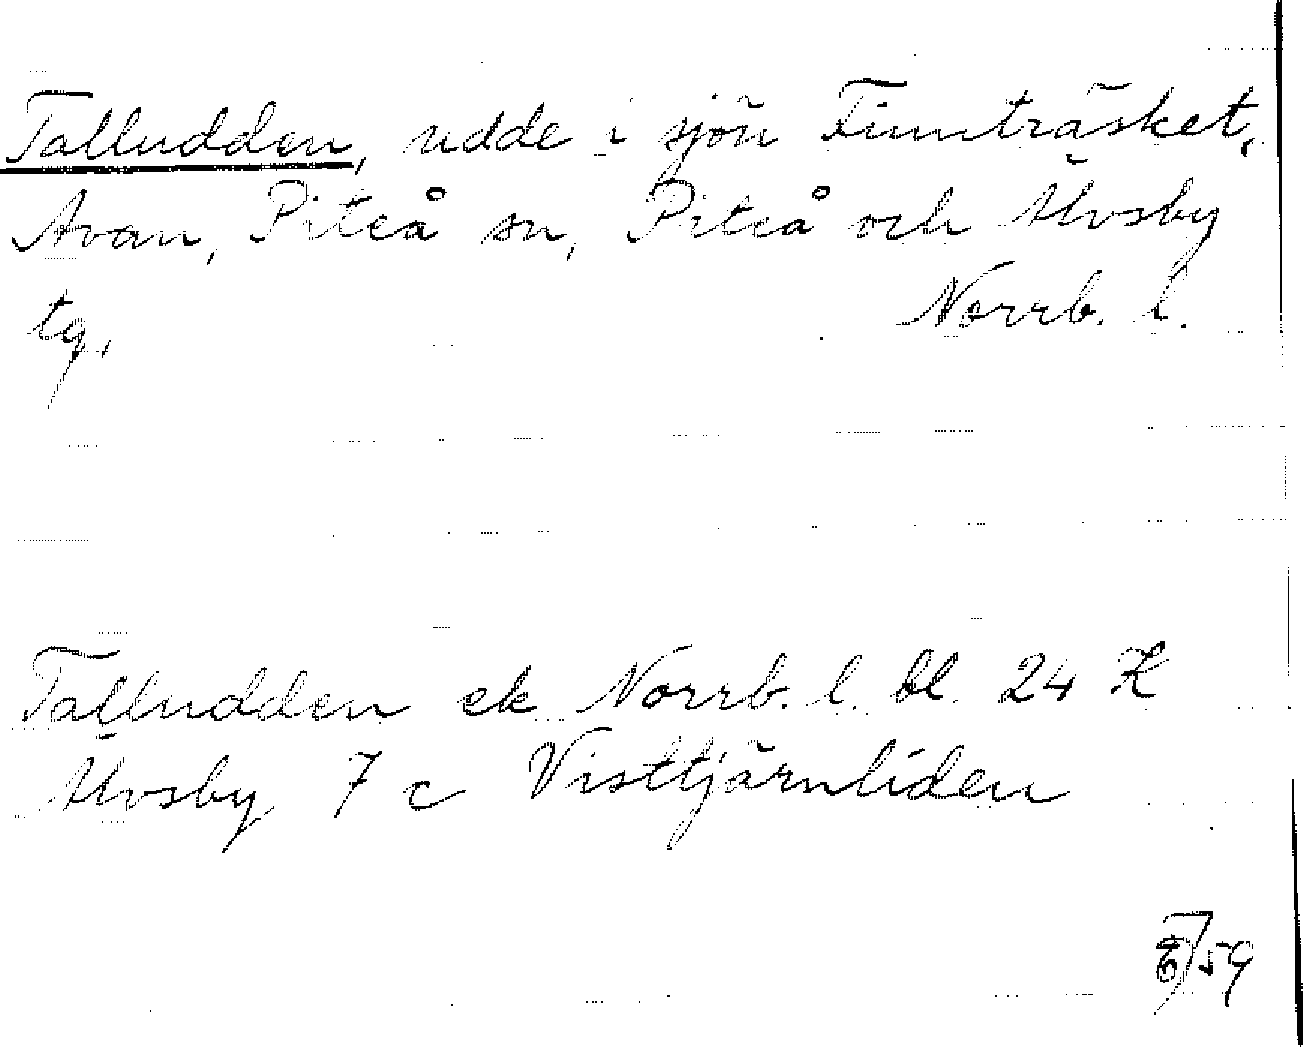 Talludden, udde i sjön Finnträsket,
Avan, Piteå sn, Piteå och Älvsby
tg, Norrb. l.
Talludden ek Norrb. l. bl. 24 K
Älvsby 7 c Visttjärnliden
59